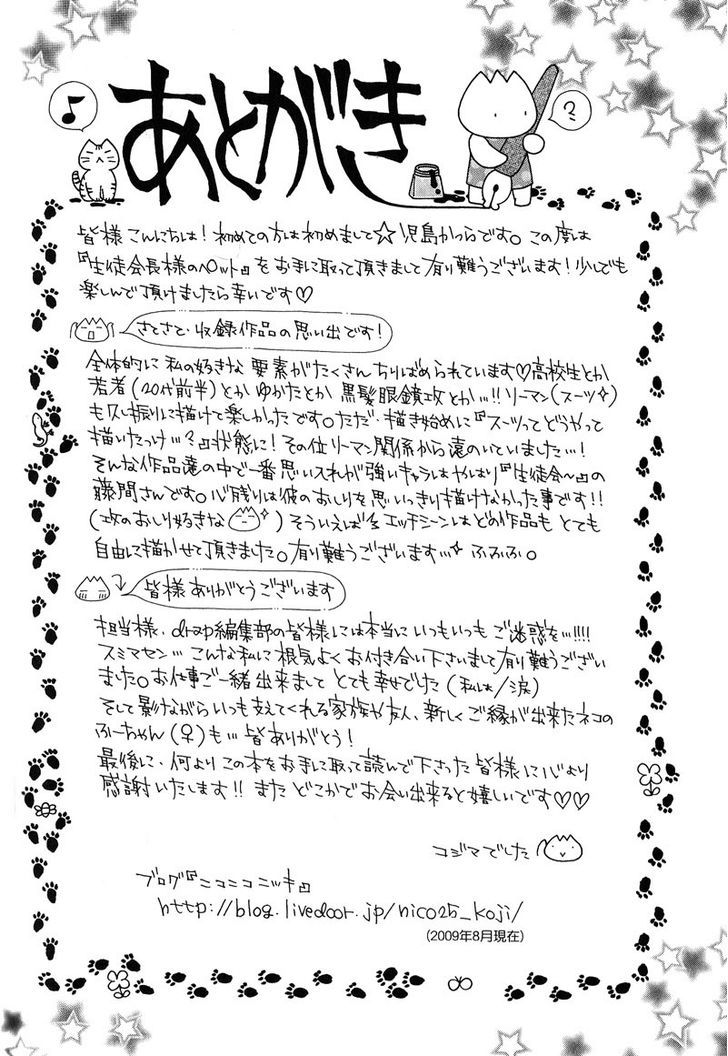 あとがき
♪
?
皆様こんにちは!初めての方は初めまして☆児島かつらです。この度は
『生徒会長様のペット』をお手に取って頂きまして有り難うございます!少しでも
楽しんで頂けましたら幸いです♡
さてさて・収録作品の思い出です!
全体的に私の好きな要素がたくさんちりばめられています♡高校生とか
若者(20代前半)とかゆかたとか黒髪眼鏡攻とか…!!リーマン(スーツ✧)
も久し振りに描けて楽しかったです。ただ、描き始めに『スーツってどうやって
描いたっけ…?』状態に!その位リーマン関係から遠のいていました…!
そんな作品達の中で一番思い入れが強いキャラはやはり『生徒会〜』の
藤間さんです。心残りは彼のおしりを思いっきり描けなかった事です!!
(攻のおしり好きな ✧)そういえば今エッチシーンはどの作品もとても
自由に描かせて頂きました。有り難うございます…✧ふふふ。
皆様ありがとうございます
担当様、drap編集部の皆様には本当にいつもいつもご迷惑を…!!!!
スミマセン…こんな私に根気よくお付き合い下さいまして有り難うござい
ました。お仕事ご一緒出来ましてとても幸せでした(私は/涙)
そして影ながらいつも支えてくれる家族や友人、新しくご縁が出来たネコの
ふーちゃん(♀)も…皆ありがとう!
最後に、何よりこの本をお手に取って読んで下さった皆様に心より
感謝いたします!!またどこかでお会い出来ると嬉しいです♡♡
コジマでした
ブログ『ニコニコニッキ』
http://blog.livedoor.jp/nico25_koji/
(2009年8月現在)